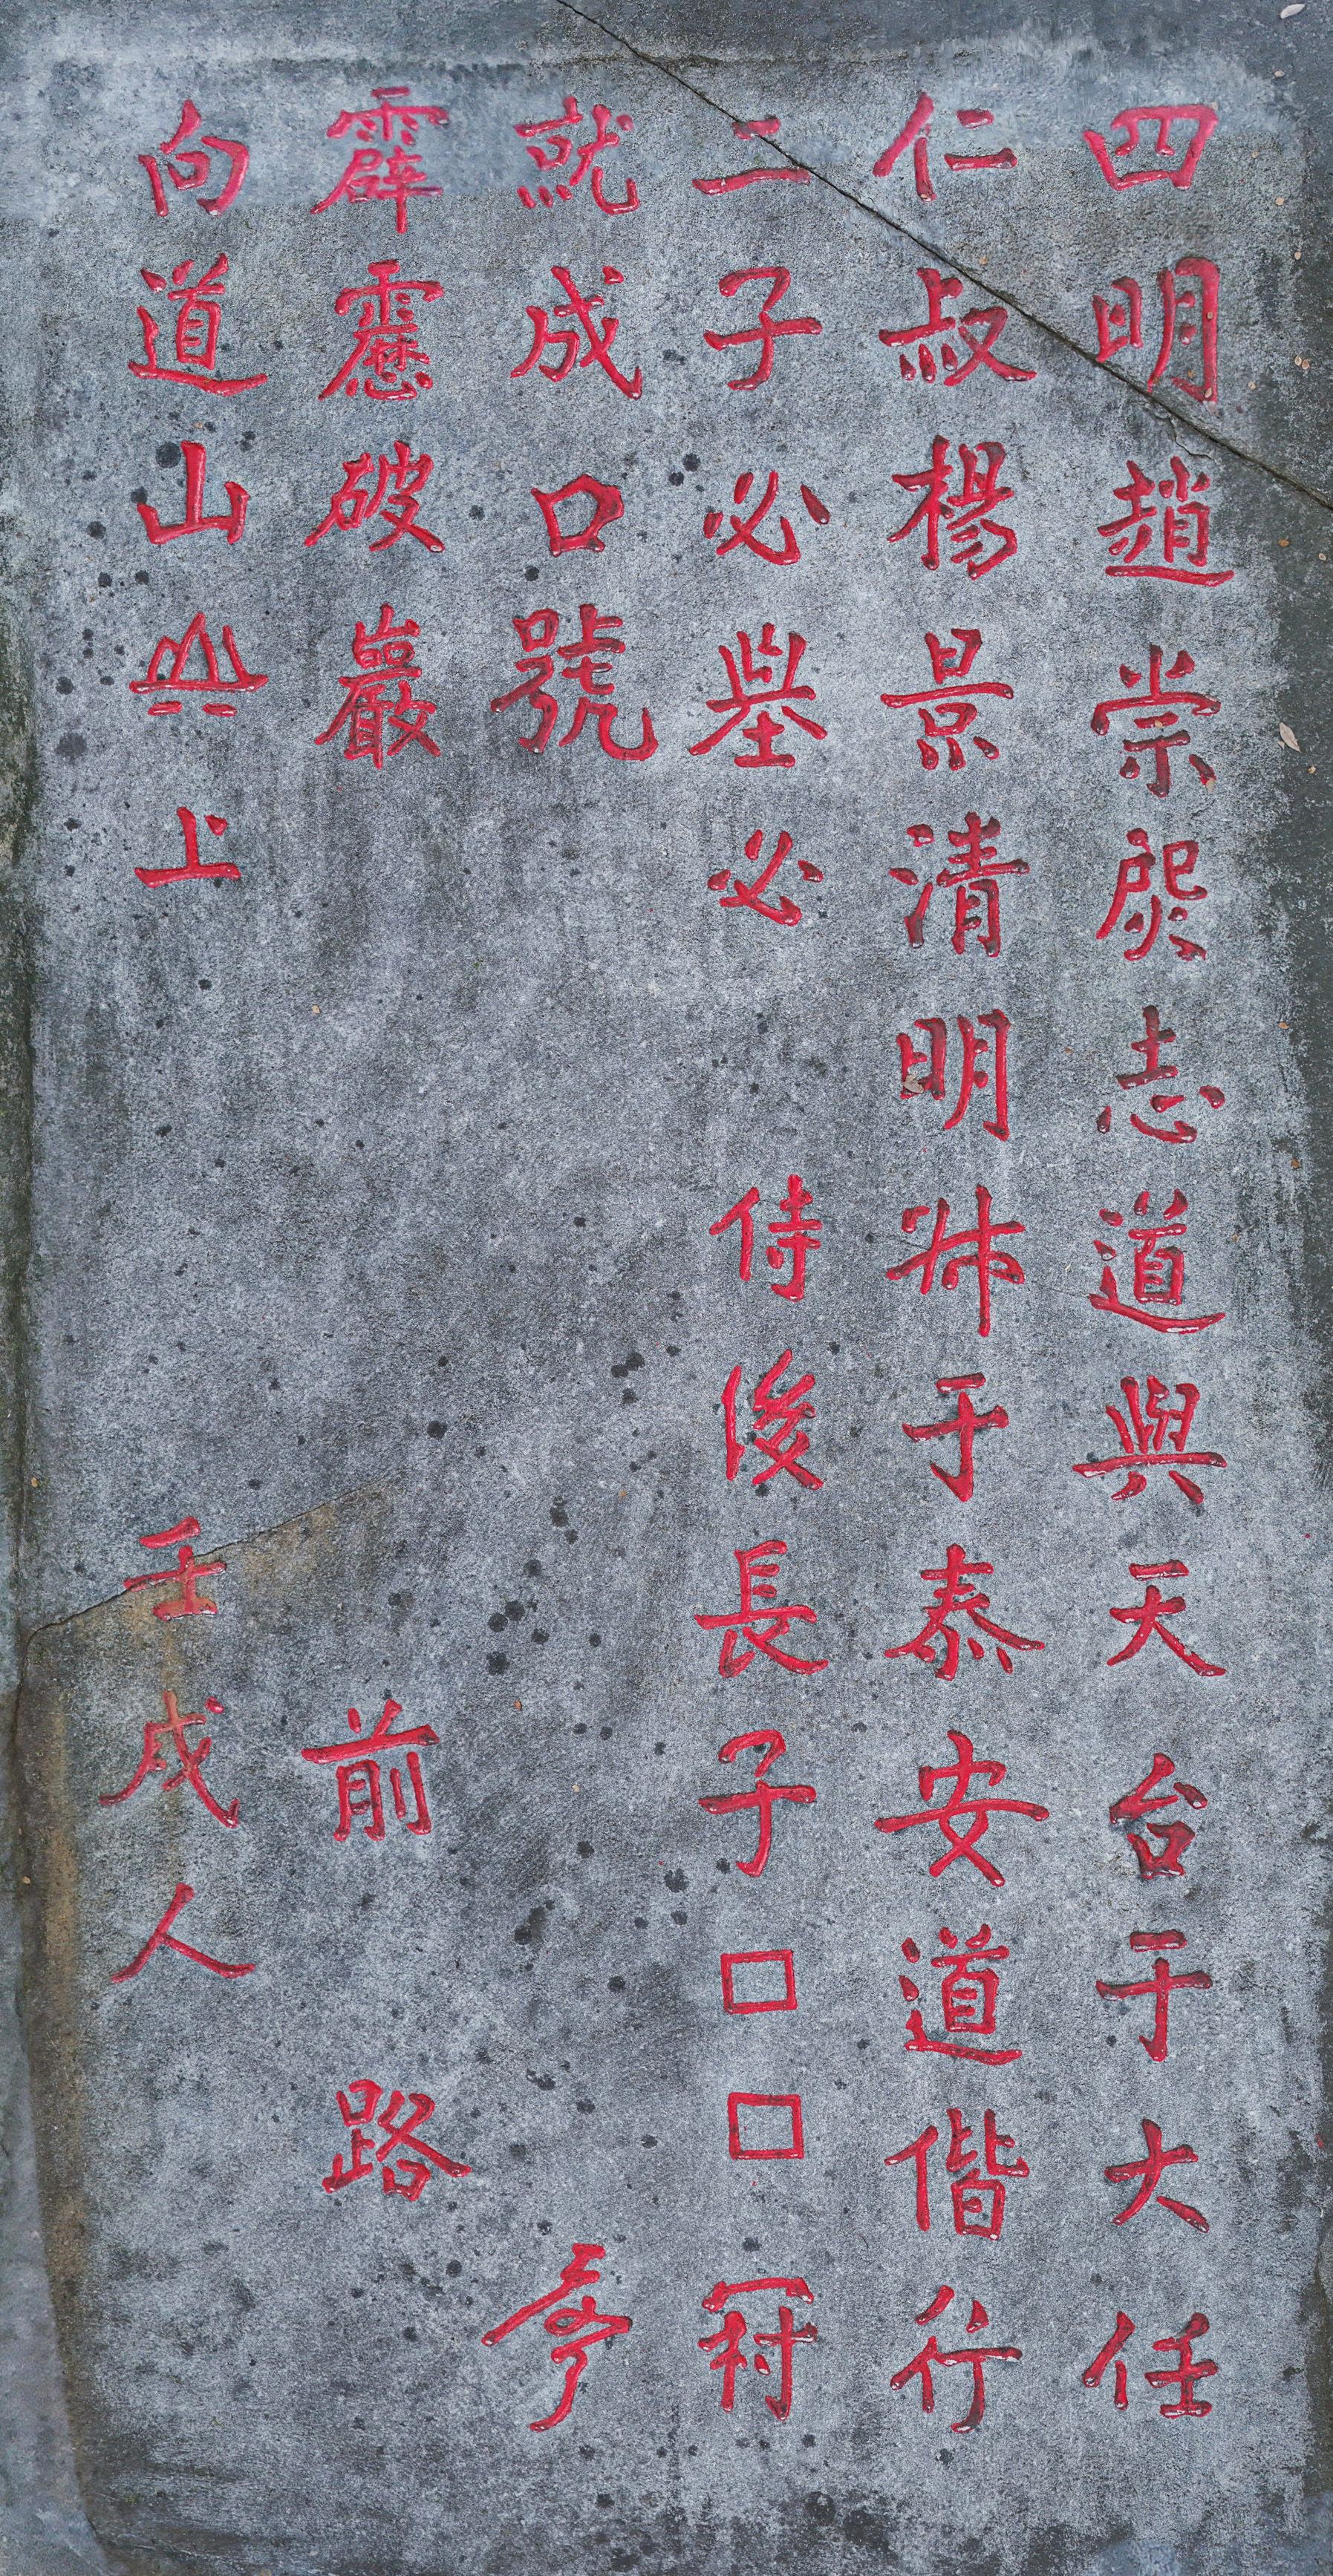 四明趙崇志道與天台于大任
仁叔楊景清明叔于泰安道偕行
二子必必 侍後長子□□
就成口號
霹靂破巖 前 路
向道山上 壬戌人